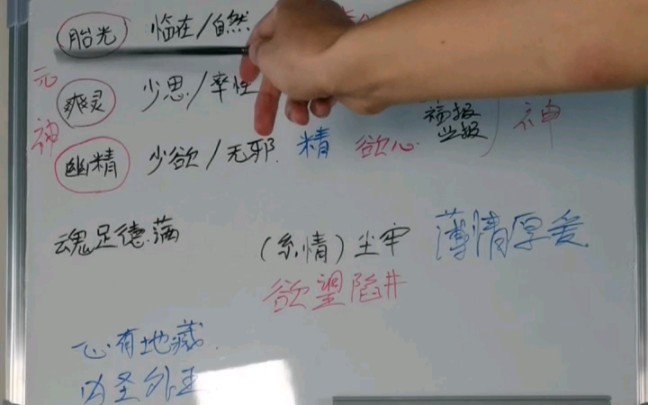 胎光 临在/自然
元 爽灵 少思/率性
神 幽精 少欲/无邪 精 欲心 福报 业报 神
魂足德满 (亲情) 尘牢 薄情厚爱
欲望陷井
心有地藏
内圣外王